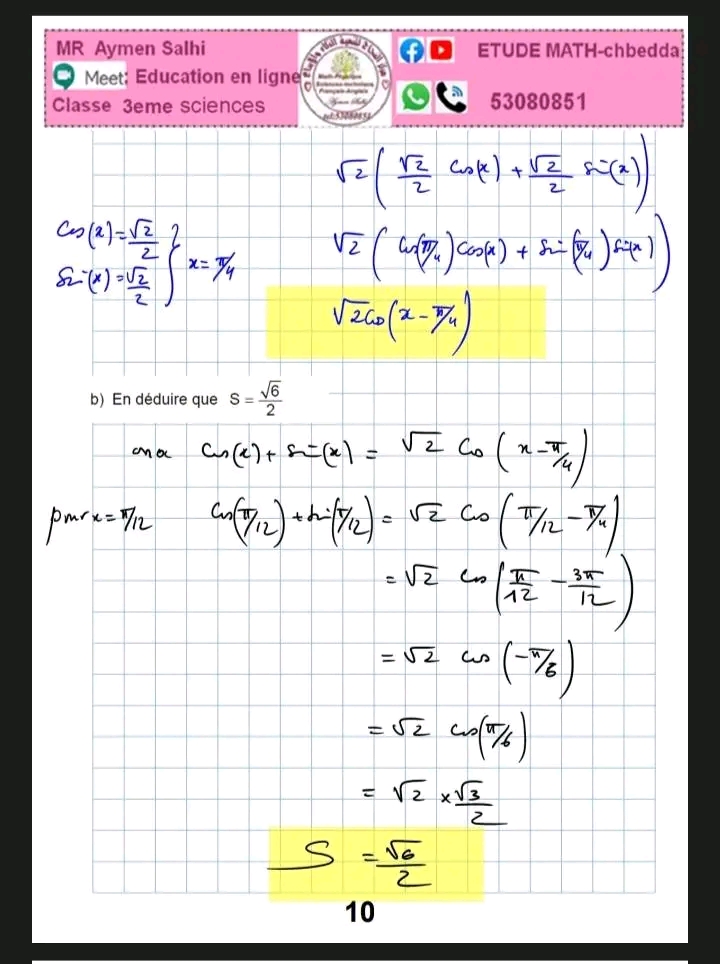 MR Aymen Salhi
Meet: Education en ligne
Classe 3eme sciences
ETUDE MATH-chbedda
53080851
√2 ( √2/2 cos(x) + √2/2 sin(x) )
cos(x) = √2/2
sin(x) = √2/2 } x = π/4
√2 ( cos(π/4) cos(x) + sin(π/4) sin(x) )
√2 cos(x - π/4)
b) En déduire que S = √6/2
on a cos(x) + sin(x) = √2 cos ( x - π/4 )
pour x = π/12 cos(π/12) + sin(π/12) = √2 cos ( π/12 - π/4 )
= √2 cos ( π/12 - 3π/12 )
= √2 cos ( -π/6 )
= √2 cos(π/6)
= √2 × √3/2
S = √6/2
10